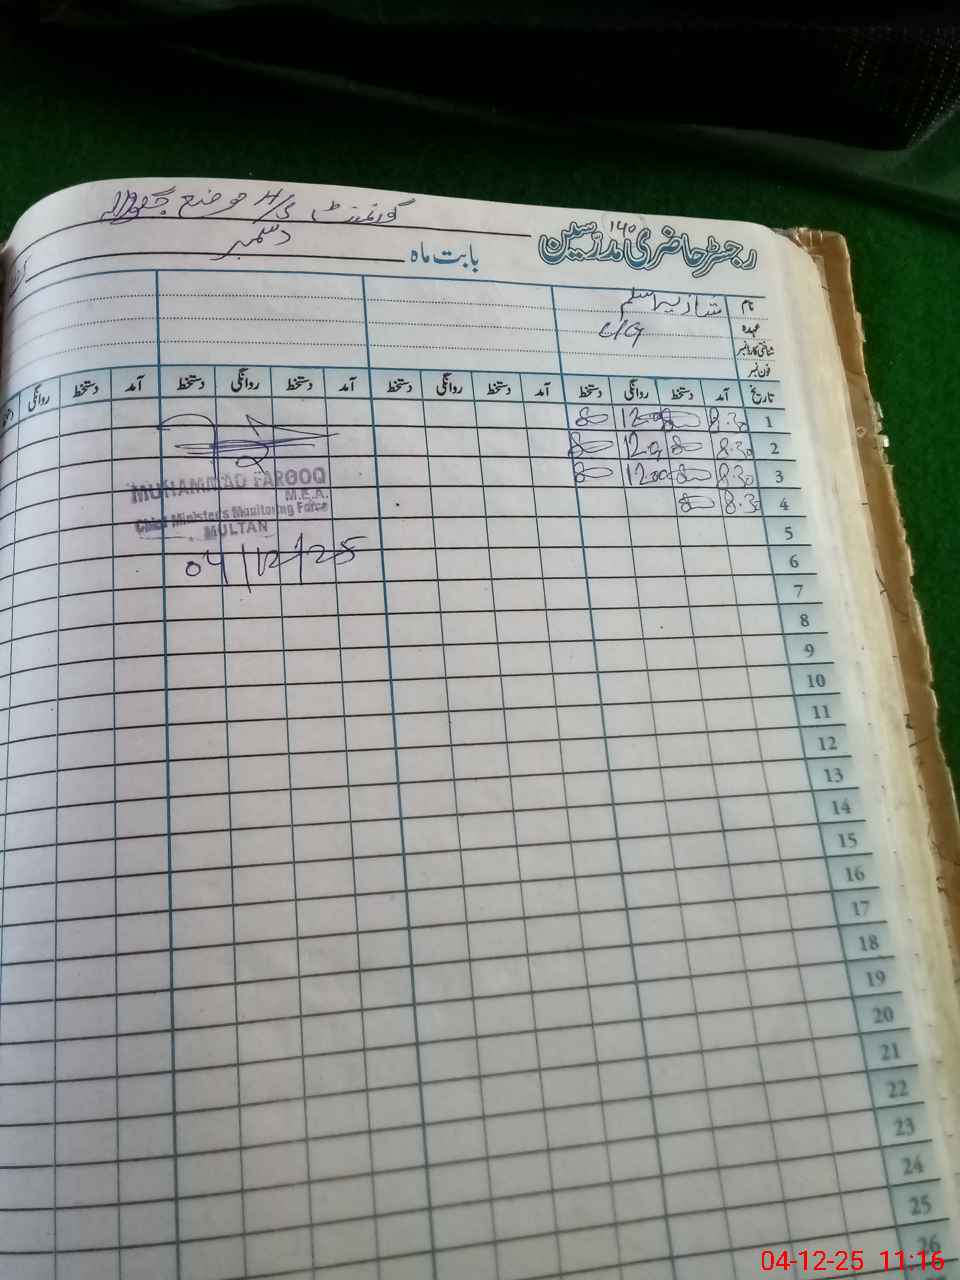 گورنمنٹ ی/H موضع
رجسٹر حاضری مدرسین
بابت ماہ دسمبر
نام شازیہ اسلم
عہدہ
شناختی کارڈ نمبر
فون نمبر
تاریخ آمد دستخط روانگی دستخط آمد دستخط روانگی دستخط آمد دستخط روانگی دستخط آمد دستخط روانگی
1 8.30 12.00
2 8.30 12.0
3 8.30 12.00
4 8.30
5
6
7
8
9
10
11
12
13
14
15
16
17
18
19
20
21
22
23
24
25
26
MUHAMMAD FAROOQ
M.E.A.
Chief Minister's Monitoring Force
MULTAN
04/12/25
04-12-25 11:16